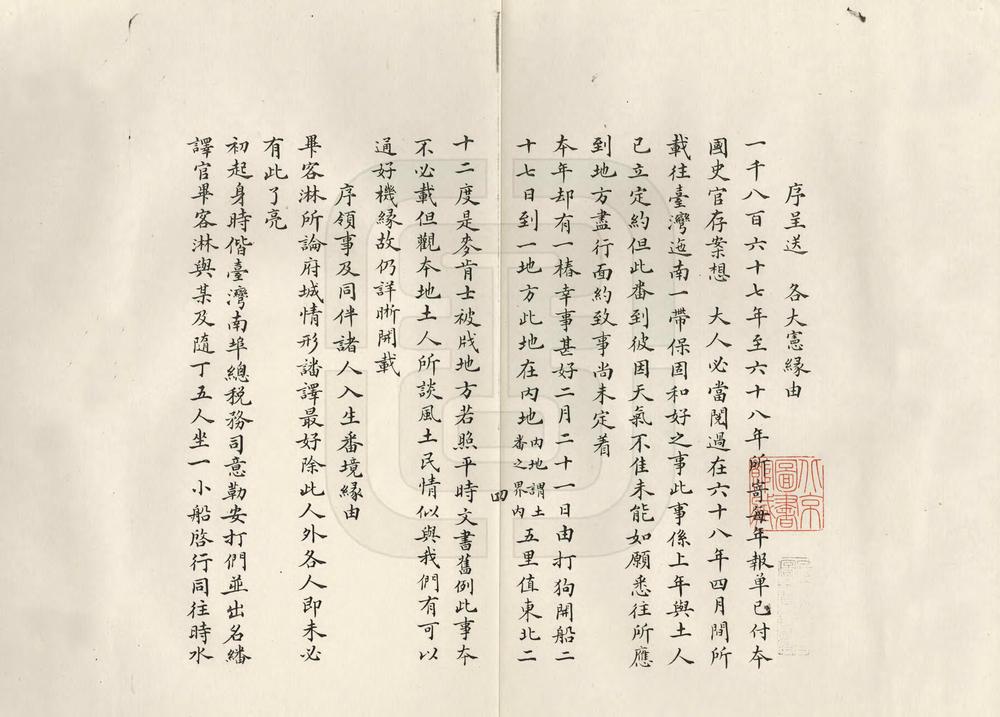 序呈送　各大憲緣由
一千八百六十七年至六十八年所寄每年報单已付本
國史官存案想　大人必當閱過在六十八年四月間所
載往臺灣迤南一帶保固和好之事此事係上年與土人
已立定約但此番到彼因天氣不佳未能如願悉往所應
到地方盡行面約致事尚未定着
本年却有一樁幸事甚好二月二十一日由打狗開船二
十七日到一地方此地在内地内地謂土番之界内五里值東北二
四
十二度是麥肯士被戕地方若照平時文書舊例此事本
不必載但觀本地土人所談風土民情似與我們有可以
通好機緣故仍詳晰開載
序領事及同伴諸人入生番境緣由
畢客淋所論府城情形譒譯最好除此人外各人即未必
有此了亮
初起身時偕臺灣南埠總税務司意勒安打們並出名繙
譯官畢客淋與某及隨丁五人坐一小船啓行同往時水